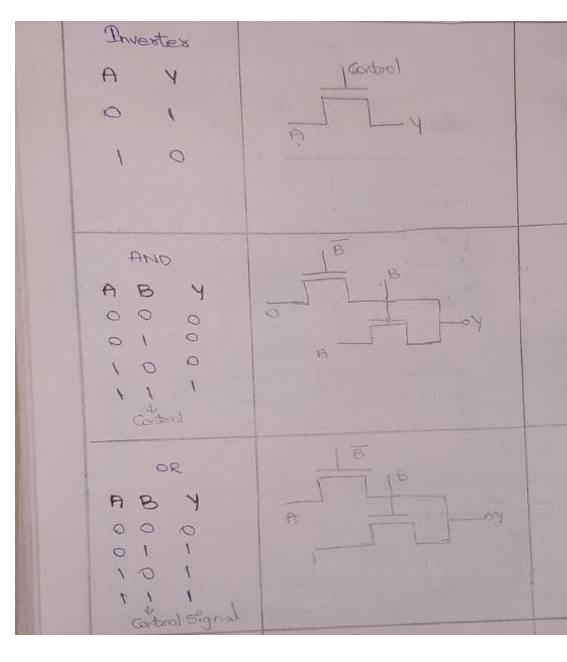 Inverter
A Y
0 1
1 0
Control
A
Y
AND
A B Y
0 0 0
0 1 0
1 0 0
1 1 1
↓
Control
B̅
B
0
Y
A
OR
A B Y
0 0 0
0 1 1
1 0 1
1 1 1
↓
Control Signal
B̅
B
A
Y
1